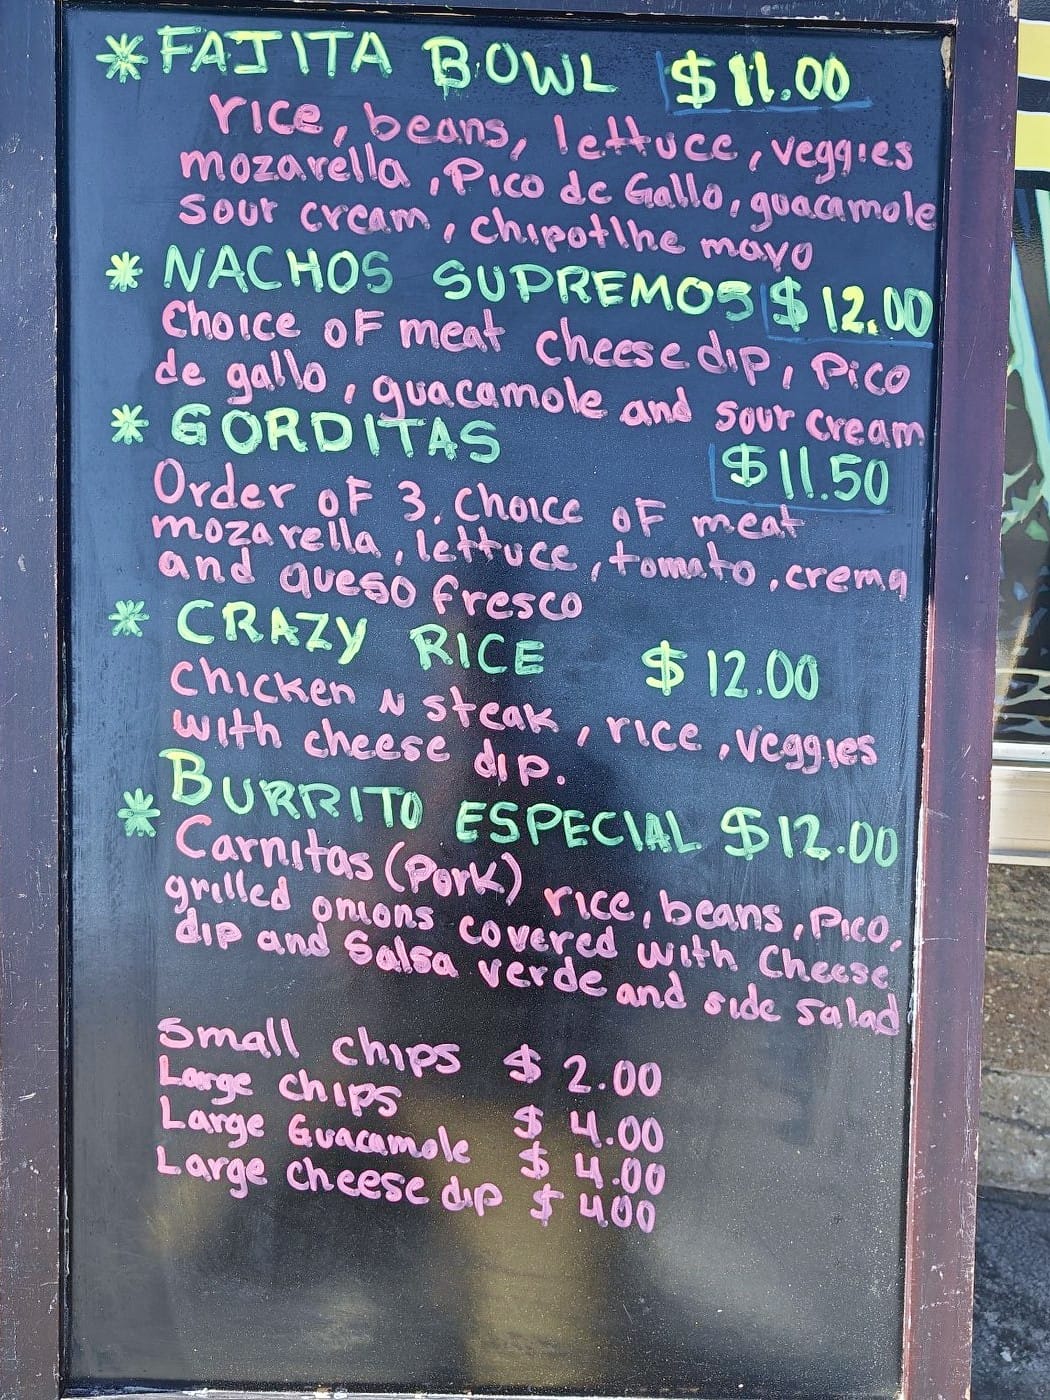 * FAJITA BOWL $11.00
rice, beans, lettuce, veggies
mozarella, Pico de Gallo, guacamole
sour cream, chipotlhe mayo
* NACHOS SUPREMOS $12.00
Choice OF meat cheese dip, Pico
de gallo, guacamole and sour cream
* GORDITAS $11.50
Order OF 3. choice OF meat
mozarella, lettuce, tomato, crema
and queso fresco
* CRAZY RICE $12.00
Chicken N steak, rice, veggies
with cheese dip.
* BURRITO ESPECIAL $12.00
Carnitas (Pork) rice, beans, Pico,
grilled onions covered with Cheese
dip and Salsa verde and side salad
Small chips $2.00
Large chips $4.00
Large Guacamole $4.00
Large cheese dip $400